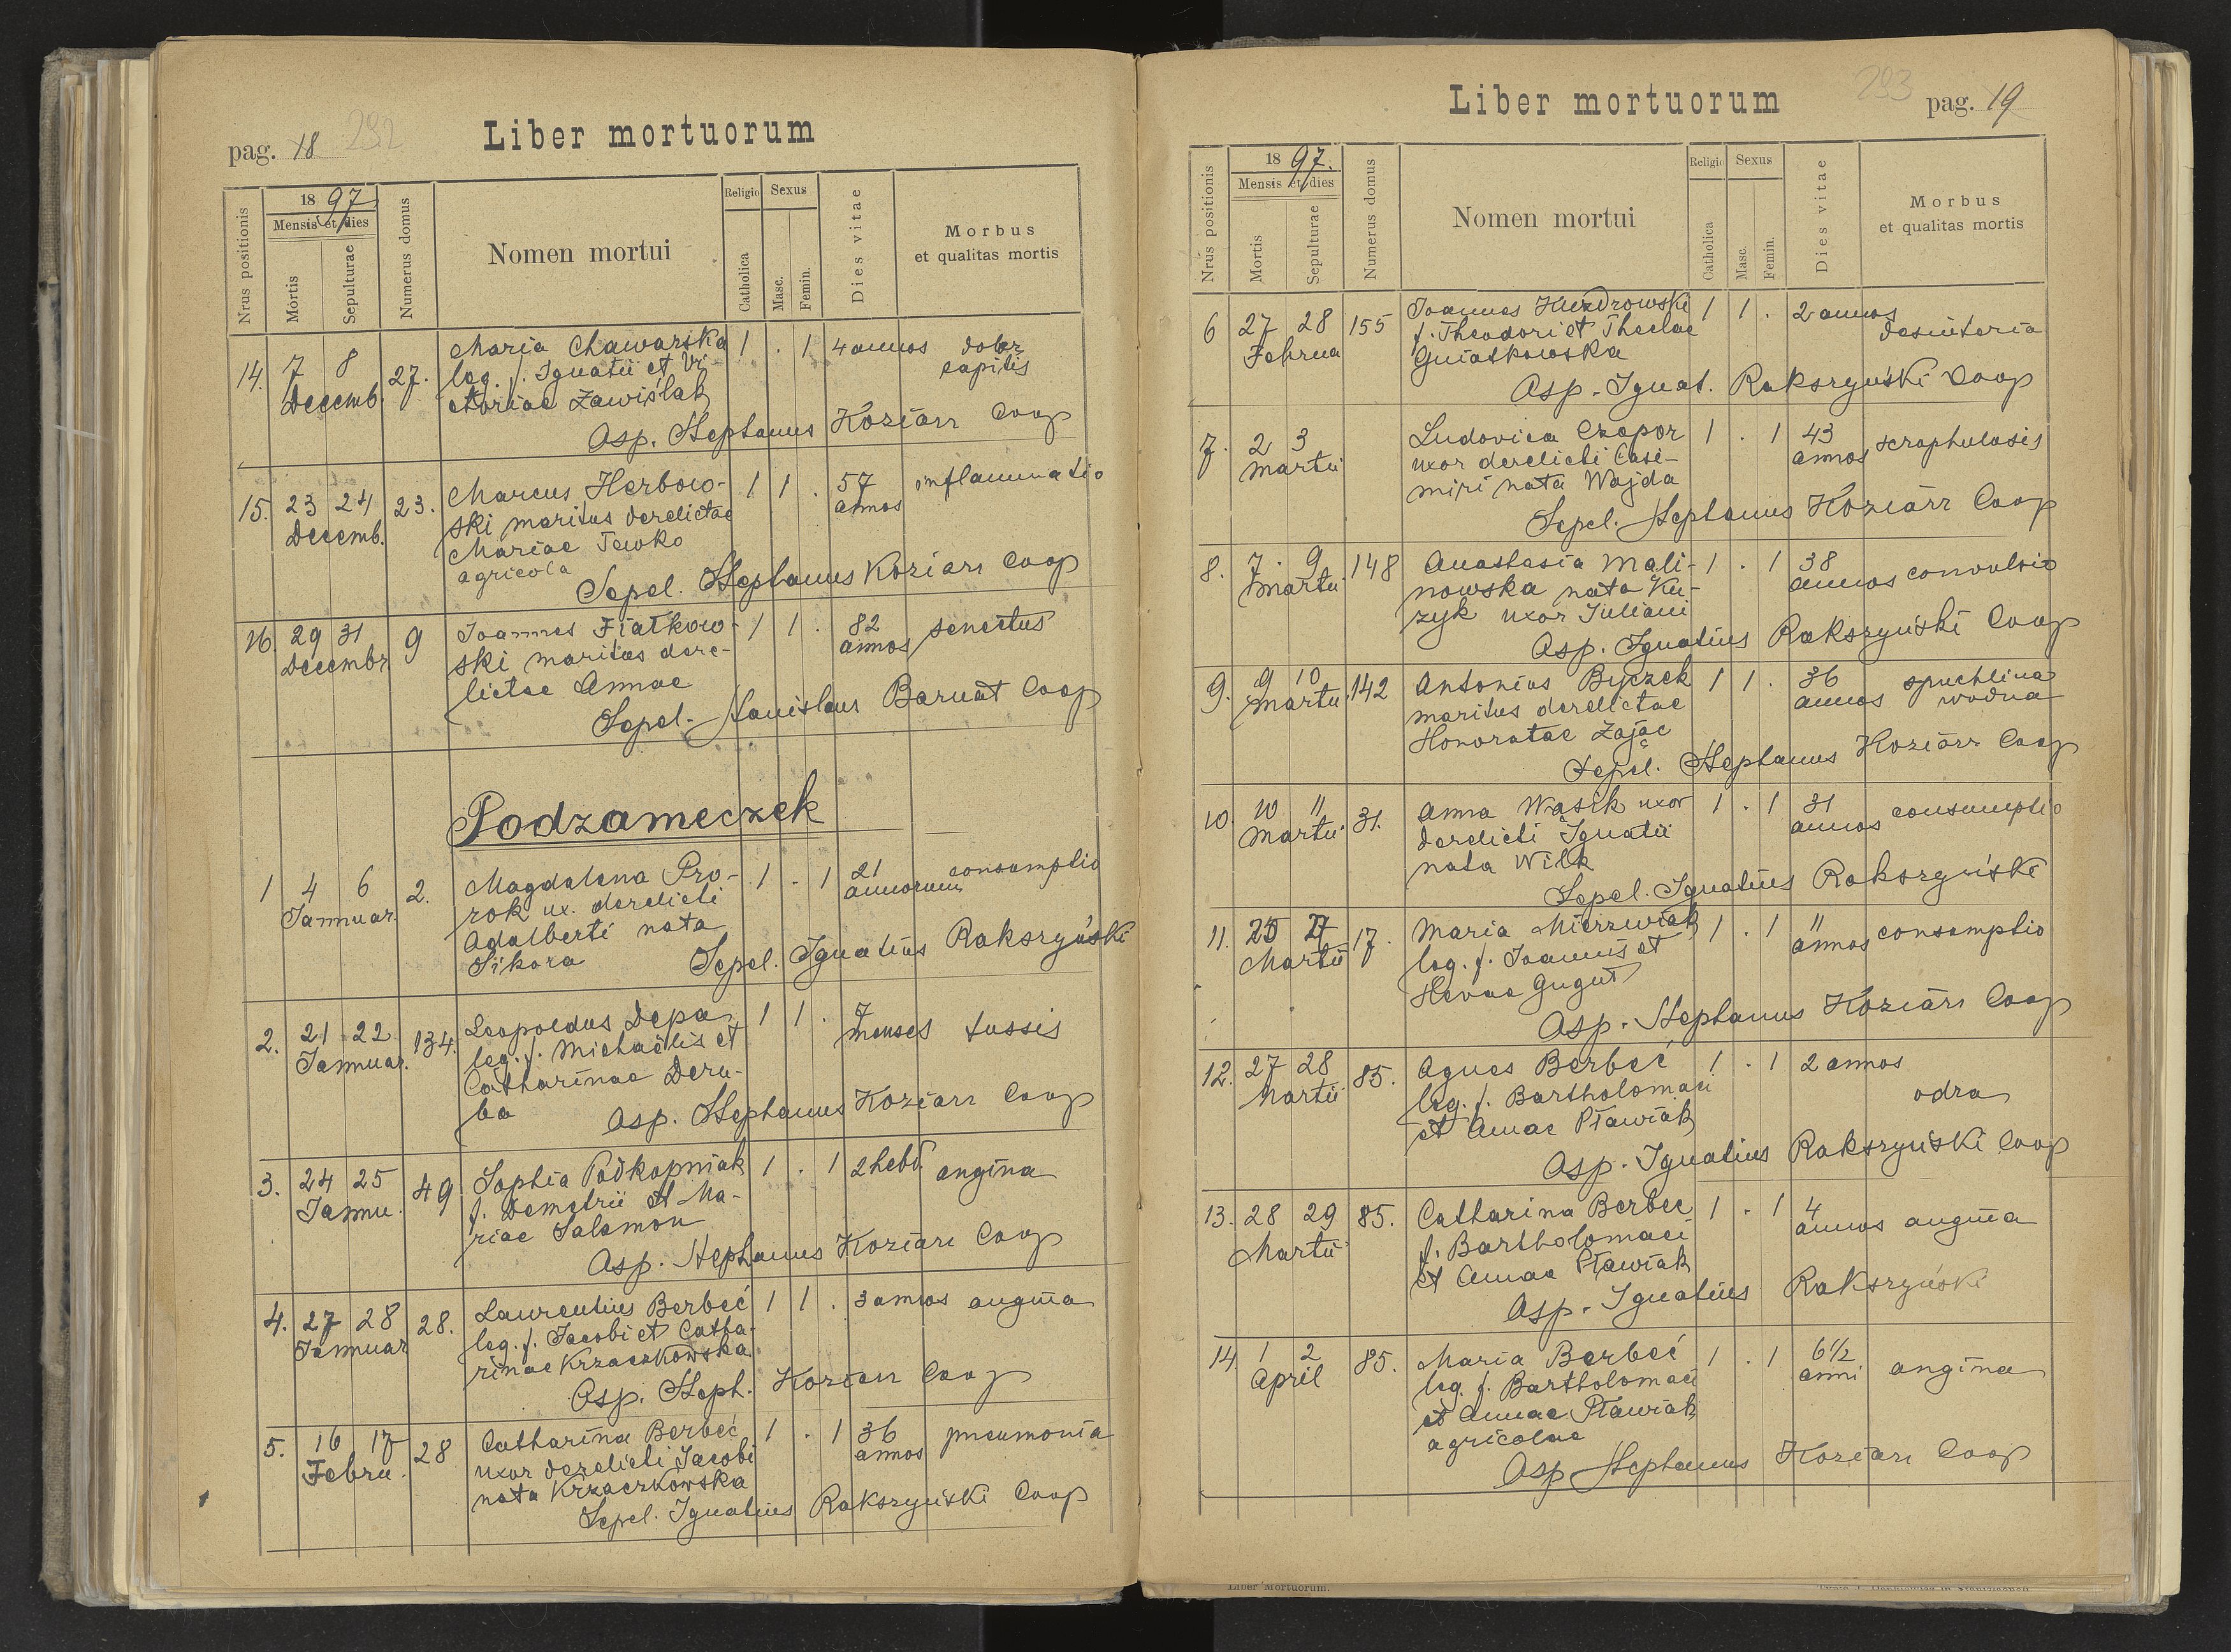 pag. 18 292
Liber mortuorum
Nrus positionis
1897.
Mensis et dies
Mortis
Sepulturae
Numerus domus
Nomen mortui
Religio
Catholica
Sexus
Masc.
Femin.
Dies vitae
Morbus
et qualitas mortis
14. 7 8 27. Maria Chawarska 1 . 1 4 annos dolor
Decemb. leg. f. Ignatii et Vi- capitis
ctoriae Zawiślak
Asp. Stephanus Koziarz Coop
15. 23 24 23. Marcus Herbow- 1 1 . 57 inflammatio
Decemb. ski maritus derelictae annos
Mariae Tewko
agricola
Sepel. Stephanus Koziarz Coop
16. 29 31 9 Joannes Fiałkow- 1 1 . 82 senectus
Decembr ski maritus dere- annos
lictae Annae
Sepel. Stanislaus Barnat Coop
Podzameczek
1 4 6 2. Magdalena Pro- 1 . 1 21 consumptio
Jannuar. rok ux. derelicti annorum
Adalberti nata
Sikora
Sepel. Ignatius Rakszyński
2. 21 22 134. Leopoldus Depa 1 1 . 7
Jannuar. leg. f. Michaëlis et menses tussis
Catharinae Deru-
ba
Asp. Stephanus Koziarz Coop
3. 24 25 49 Sophia Podkopniak 1 . 1 2 hebd. angina
Jannu. f. Demetrii et Ma-
riae Salamon
Asp. Stephanus Koziarz Coop
4. 27 28 28. Laurentius Berbeć 1 1 . 3 annos angina
Jannuar leg. f. Jacobi et Catha-
rinae Krzaczkowska
Asp. Steph. Koziarz Coop
5. 16 17 28 Catharina Berbeć 1 . 1 36 pneumonia
Febru. uxor derelicti Jacobi annos
nata Krzaczkowska
Sepel. Ignatius Rakszyński Coop
Liber mortuorum
293 pag. 19
Nrus positionis
1897.
Mensis et dies
Mortis
Sepulturae
Numerus domus
Nomen mortui
Religio
Catholica
Sexus
Masc.
Femin.
Dies vitae
Morbus
et qualitas mortis
6 27 28 155 Joannes 1 1 . 2 annos
Februa f. Theodori et Theclae desinteria
Gniatkowska
Asp. Ignat. Rakszyński Coop
7. 2 3 Ludovica Czopor 1 . 1 43 scrophulosis
Martii uxor derelicti Casi- annos
miri nata Wajda
Sepel. Stephanus Koziarz Coop
8. 7. 9 148 Anastasia Mali- 1 . 1 38
Martii nowska nata Ku- annos convulsio
zyk uxor Juliani
Asp. Ignatius Rakszyński Coop
9. 9 10 142 Antonius Byczek 1 1 . 36 spuchlina
Martii maritus derelictae annos wodna
Honoratae Zając
Sepel. Stephanus Koziarz Coop
10. 10 11 31. Anna Wąsik uxor 1 . 1 31 consumptio
Martii derelicti Ignatii annos
nata Wilk
Sepel. Ignatius Rakszyński
11. 25 27 17. Maria Mierzwiak 1 . 1 11 consumptio
Martii leg. f. Joannis et annos
Hevae Gugut
Asp. Stephanus Koziarz Coop
12. 27 28 85. Agnes Berbeć 1 . 1 2 annos
Martii leg. f. Bartholomaei odra
et Annae Pławiak
Asp. Ignatius Rakszyński Coop
13. 28 29 85. Catharina Berbec 1 . 1 4
Martii f. Bartholomaei annos angina
et Annae Pławiak
Asp. Ignatius Rakszyński
14. 1 2 85. Maria Berbeć 1 . 1 6 1/2
April leg. f. Bartholomaei anni angina
et Annae Pławiak
agricolae
Asp Stephanus Koziarz Coop
Liber Mortuorum.